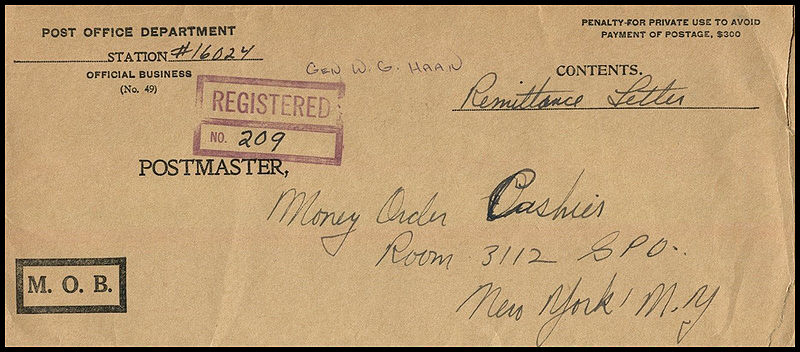 POST OFFICE DEPARTMENT
STATION #16024
OFFICIAL BUSINESS
(No. 49)
PENALTY FOR PRIVATE USE TO AVOID
PAYMENT OF POSTAGE, $300
GEN W. G. HAAN
CONTENTS.
Remittance Letter
REGISTERED
NO. 209
POSTMASTER,
Money Order Cashier
Room 3112 GPO.
New York, N.Y
M. O. B.